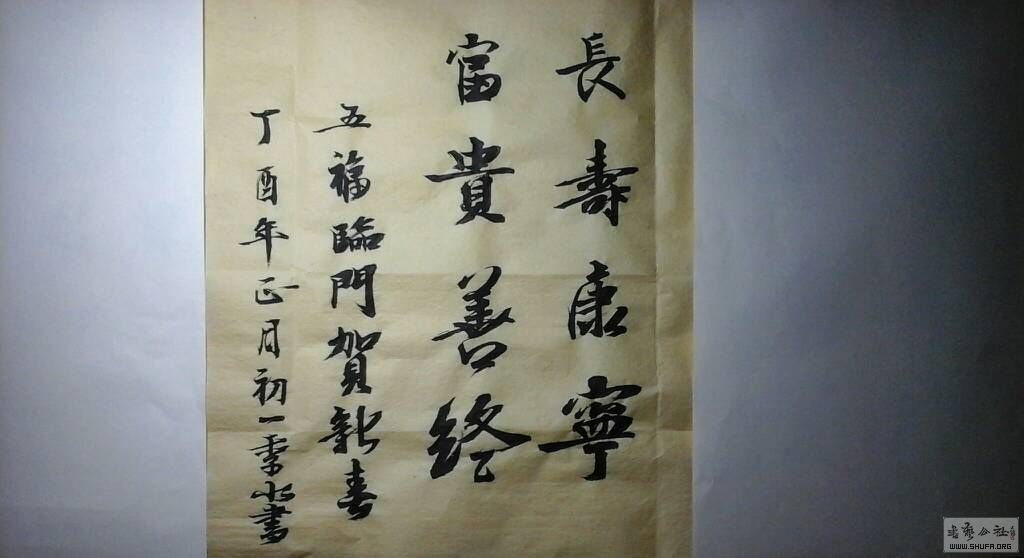 長壽康寧
富貴善終
五福臨門賀新春
丁酉年正月初一季水書
WWW.SHUFA.ORG